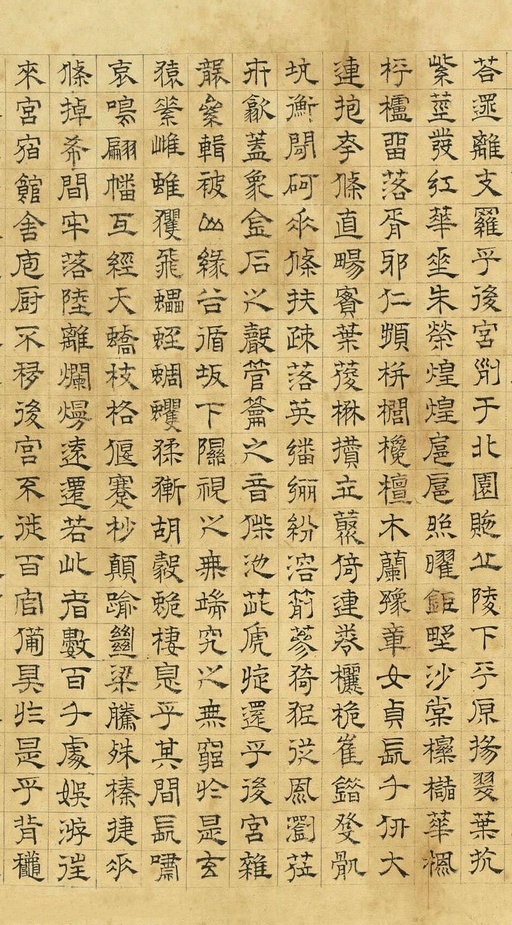 荅遝離支羅乎後宮列于北園貤丘陵下平原揚翠葉扤
紫莖發紅華垂朱榮煌煌扈扈照曜鉅野沙棠櫟櫧華楓
枰櫨留落胥邪仁頻栟櫚欃檀木蘭豫章女貞長千仞大
連抱夸條直暢實葉葰楙攢立叢倚連卷欐桅崔錯癹骫
坑衡閜砢垂條扶疎落英繙纚紛溶箾蔘猗狔從風藰莅
卉歙蓋象金石之聲管籥之音傑池茈虒旋還乎後宮雜
襲絫輯被山緣谷循坂下隰視之無端究之無窮於是玄
猿素雌蜼玃飛蠝蛭蜩蠼猱獑胡豰蛫棲息乎其間長嘯
哀鳴翩幡互經夭蟜枝格偃蹇杪顛踰絕梁騰殊榛捷垂
條掉希間牢落陸離爛熳遠遷若此者數百千處娛游往
來宮宿館舍庖廚不移後宮不徙百官備具於是乎背龝